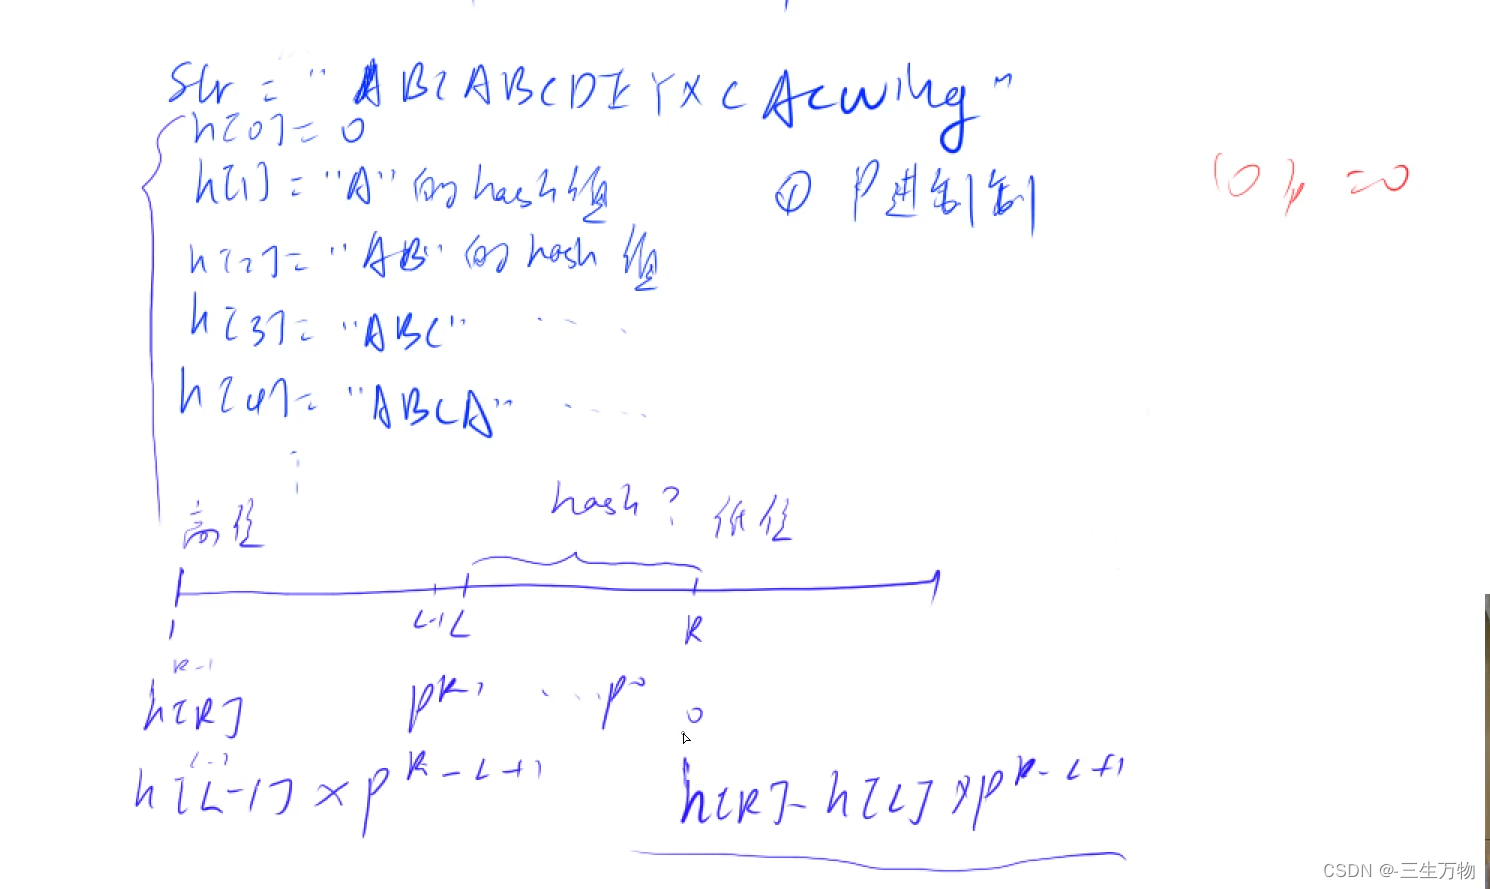 Str = "ABCABCDEYXCAcwing"
h[0] = 0
h[1] = "A" 的 hash 值
① P进制制
(0)p = 0
h[2] = "AB" 的 hash 值
h[3] = "ABC" ……
h[4] = "ABCA" ……
⋮
hash?
高位
低位
1 L-1 L R
R-1
h[R] p^R-1 …… p^0
0
L-1
h[L-1] × p^R-L+1
h[R] - h[L] × p^R-L+1
CSDN @-三生万物